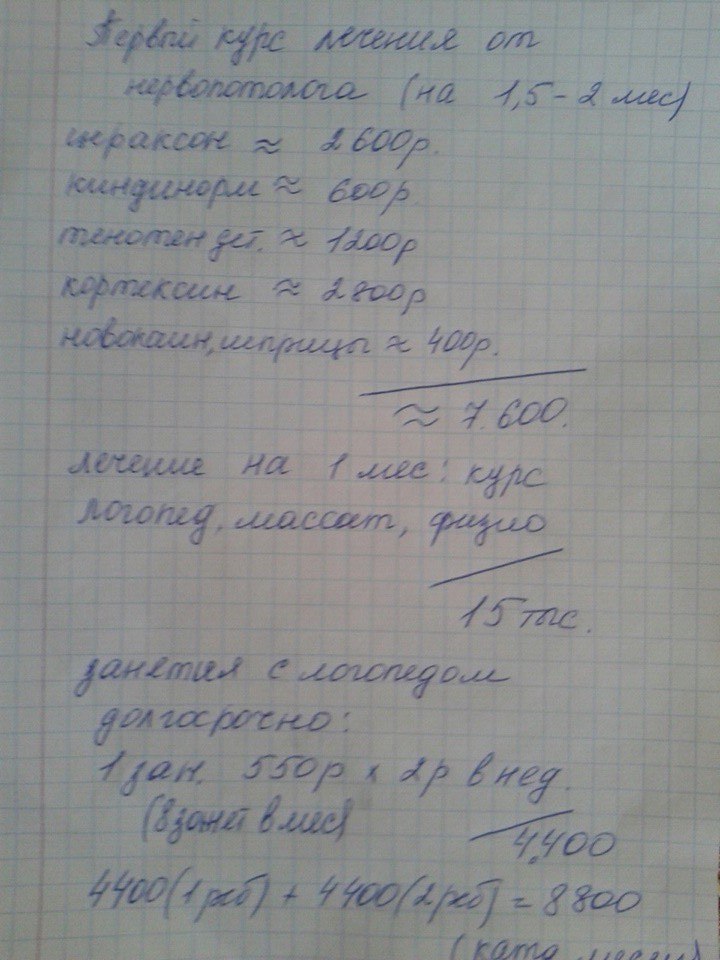 Первый курс лечения от
нервопотолога (на 1,5-2 мес)
цераксон ≈ 2600р.
киндинорм ≈ 600р
тенотен дет. ≈ 1200р
кортексин ≈ 2800р
новокаин, шприцы ≈ 400р.
≈ 7.600.
лечение на 1 мес: курс
логопед, массаж, физио
15 тыс.
занятия с логопедом
долгосрочно:
1 зан. 550р х 2р в нед.
(8 занят в мес)
4.400
4400(1 реб) + 4400(2 реб) = 8800